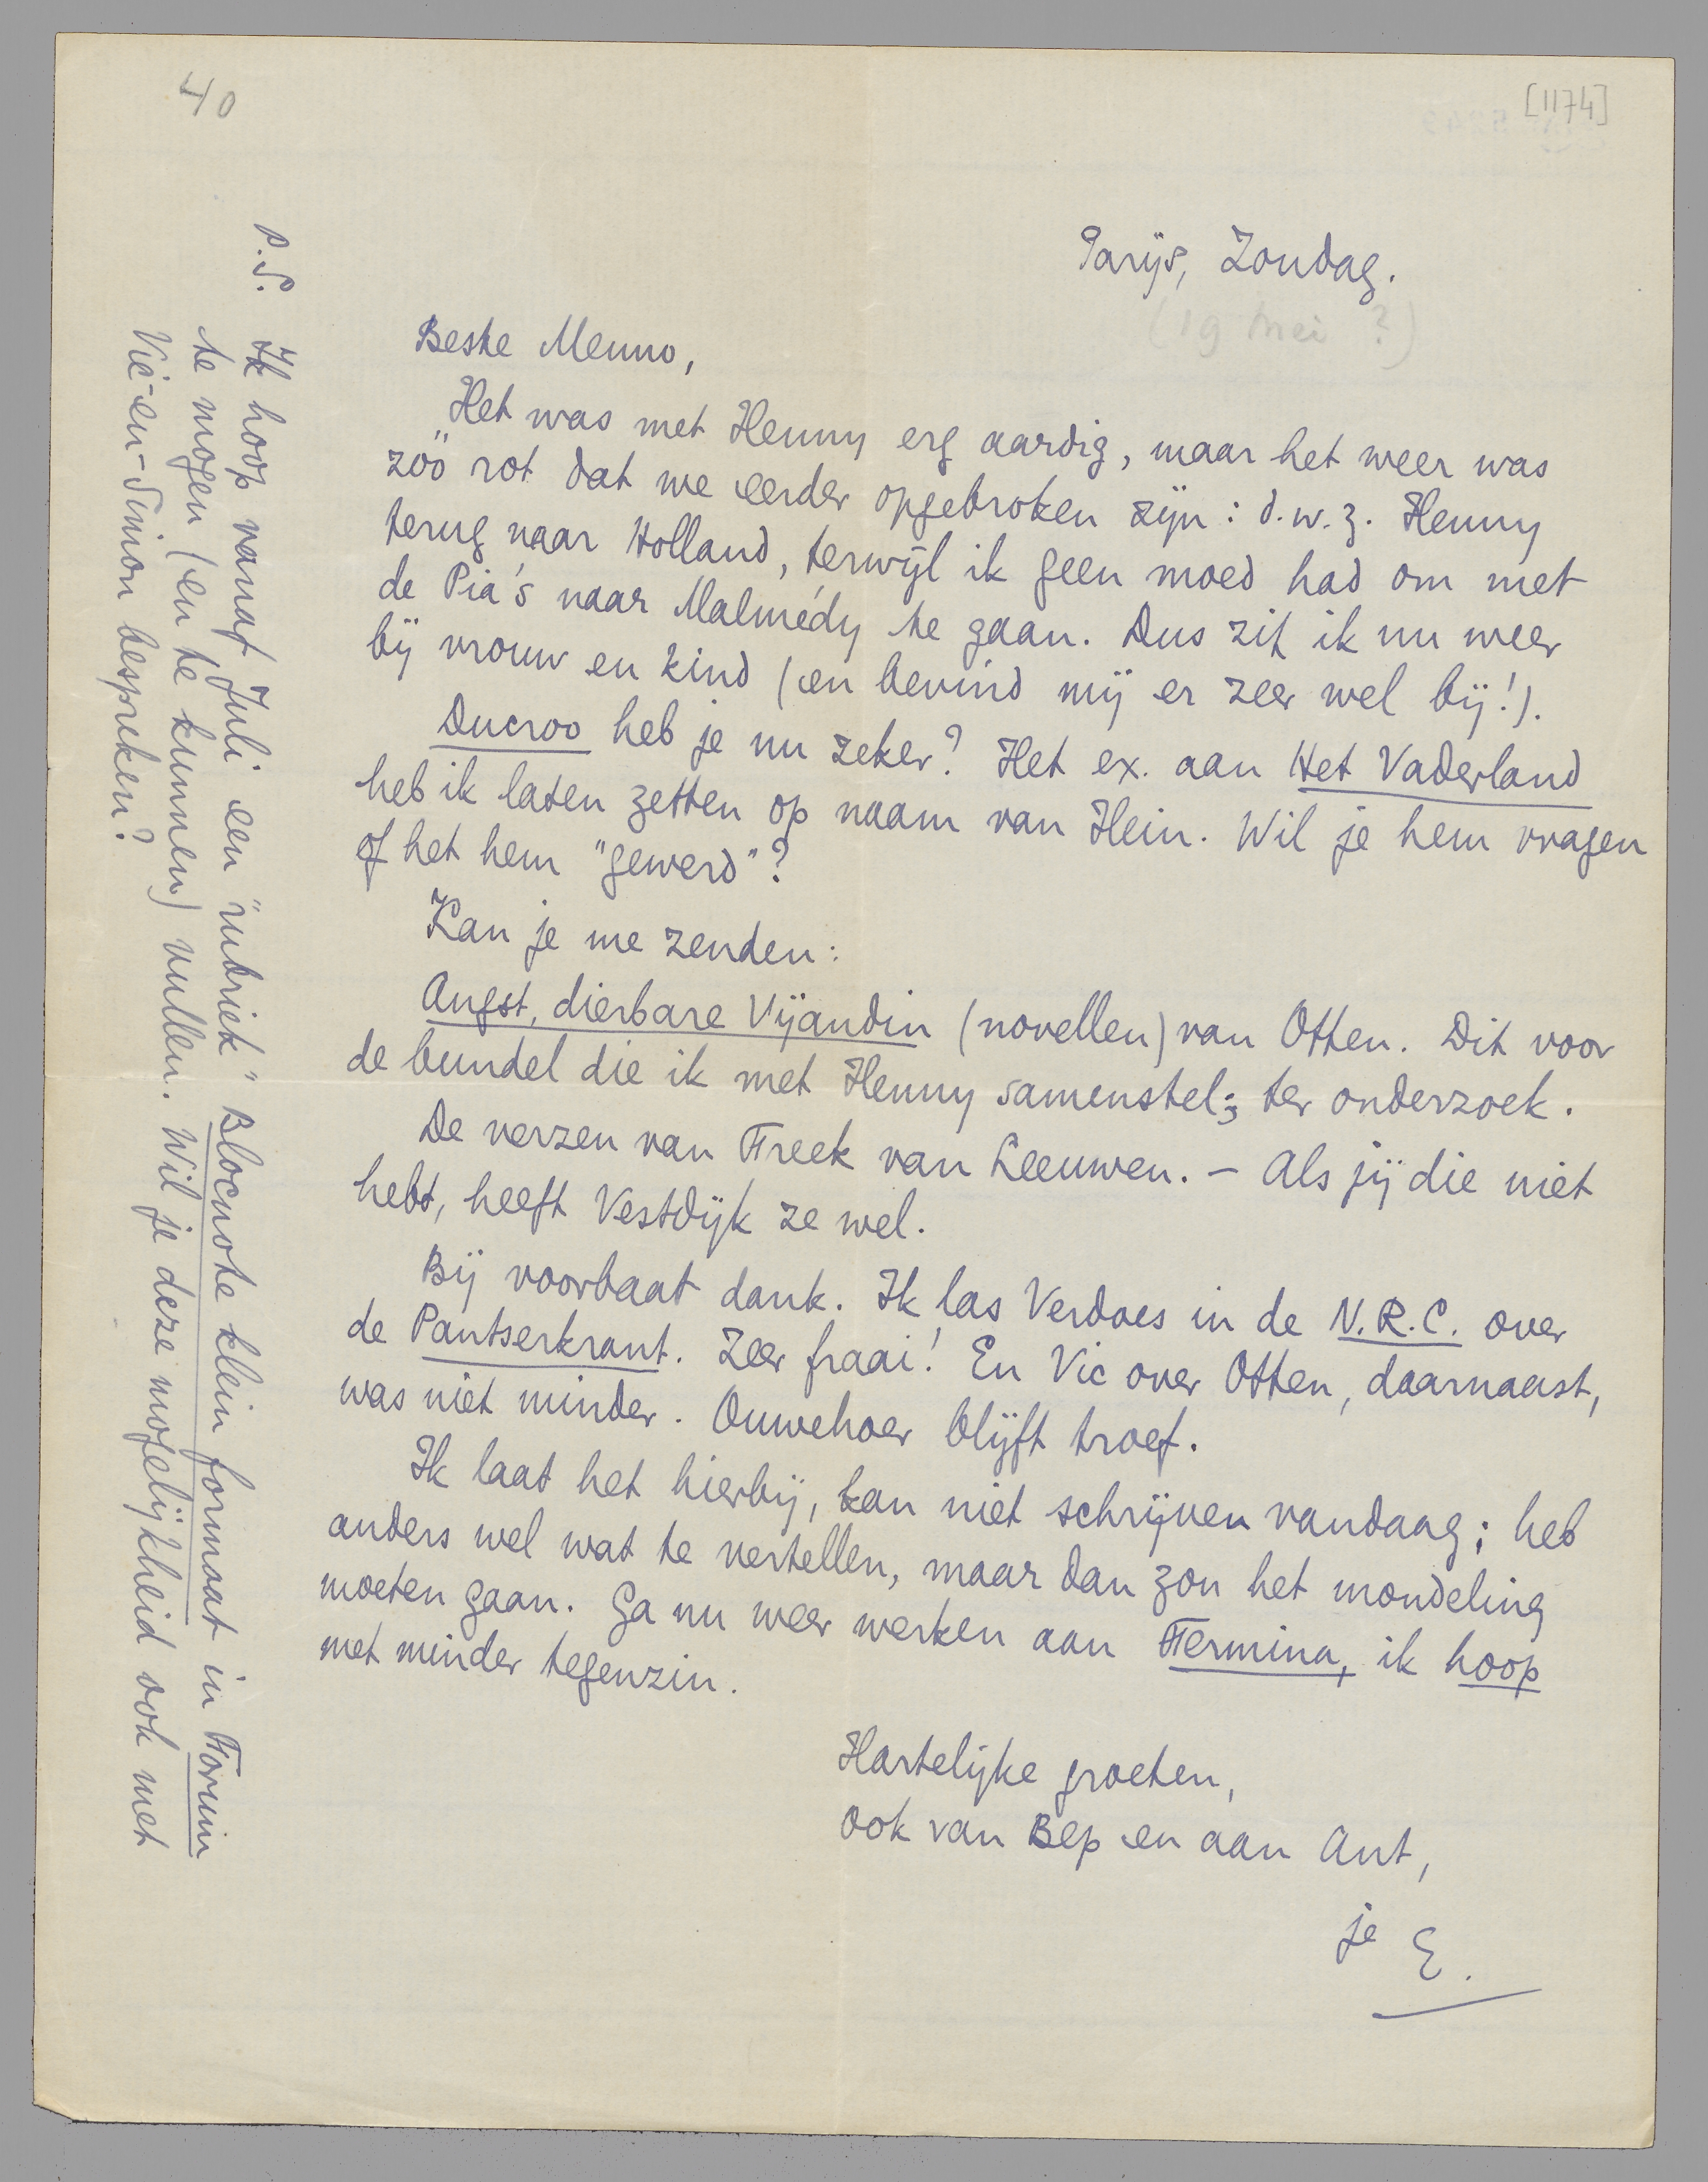 40
[1174]
Parijs, Zondag.
(19 mei ?)
Beste Menno,
Het was met Henny erg aardig, maar het weer was
zóó rot dat we eerder opgebroken zijn: d.w.z. Henny
terug naar Holland, terwijl ik geen moed had om met
de Pia's naar Malmédy te gaan. Dus zit ik nu weer
bij vrouw en kind (en bevind mij er zeer wel bij!).
Ducroo heb je nu zeker? Het ex. aan Het Vaderland
heb ik laten zetten op naam van Hein. Wil je hem vragen
of het hem "gewerd"?
Kan je me zenden:
Angst, dierbare Vijandin (novellen) van Otten. Dit voor
de bundel die ik met Henny samenstel; ter onderzoek.
De verzen van Freek van Leeuwen. – Als jij die niet
hebt, heeft Vestdijk ze wel.
Bij voorbaat dank. Ik las Verdoes in de N.R.C. over
de Pantserkrant. Zeer fraai! En Vic over Otten, daarnaast,
was niet minder. Ouwehoer blijft troef.
Ik laat het hierbij, kan niet schrijven vandaag; heb
anders wel wat te vertellen, maar dan zou het mondeling
moeten gaan. Ga nu weer werken aan Fermina, ik hoop
met minder tegenzin.
Hartelijke groeten,
ook van Bep en aan Ant,
je E.
P.S. Ik hoop vanaf Juli een "rubriek" Blocnote klein formaat in Forum
te mogen (en te kunnen) vullen. Wil je deze mogelijkheid ook met
Vic-en-Simon bespreken?